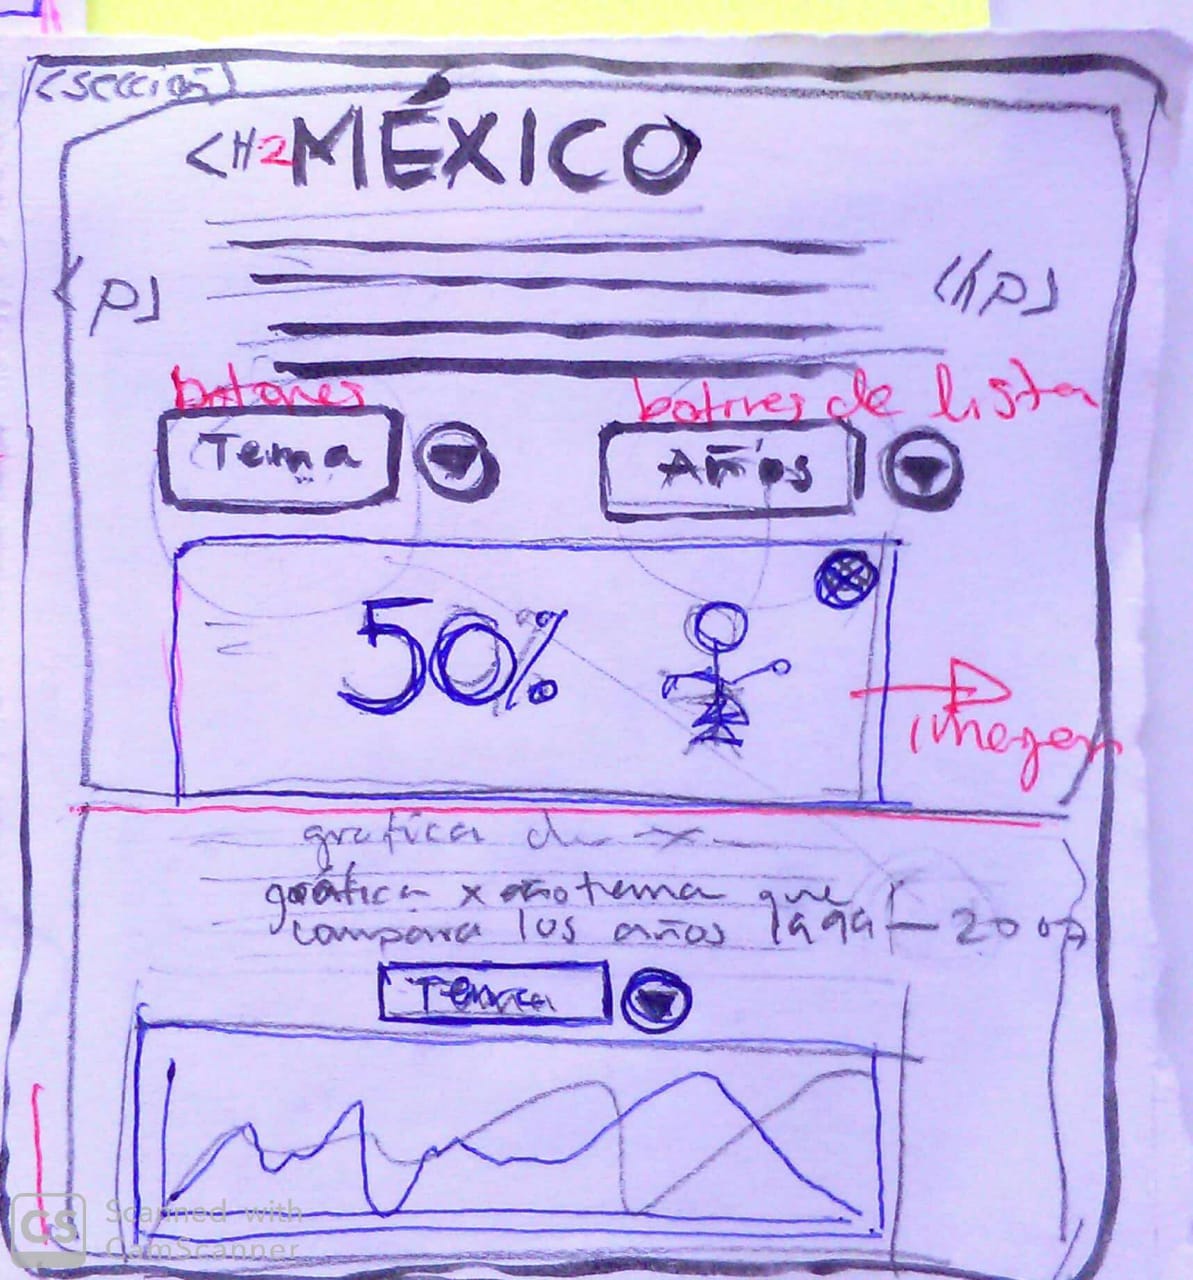 <sección>
<H2 MÉXICO
<p>
</p>
botones
botones de lista
Tema
Años
50%
imagen
grafica de x
gráfica x tema que
compara los años 1994 - 2009
Tema
CS
Scanned with
CamScanner